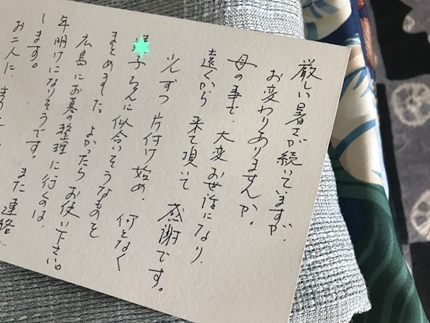 厳しい暑さが続いていますが、
お変わりありませんか。
母の事で大変お世話になり、
遠くから来て頂いて感謝です。
少しずつ片付け始め、何となく
子ちゃんに似合いそうなものを
まとめました よかったらお使い下さい。
広島にお墓の整理に行くのは、
年明けになりそうです。また連絡
します。
お二人に